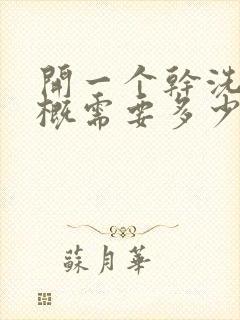 開一个幹洗
概需要多少
蘇月華